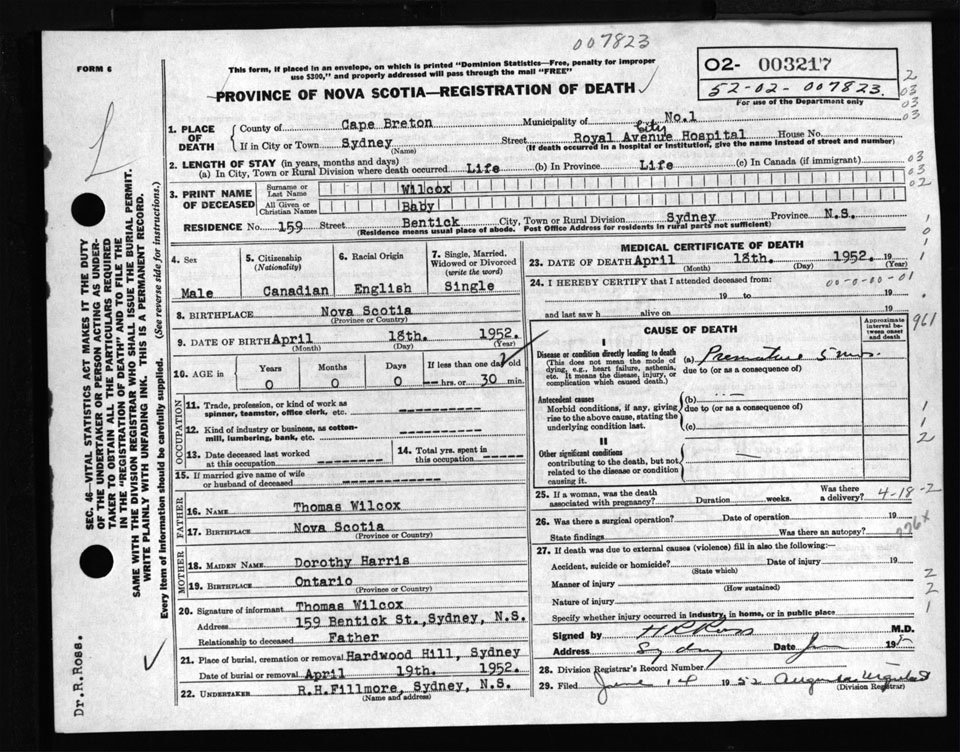 007823
FORM 6
This form, if placed in an envelope, on which is printed "Dominion Statistics—Free, penalty for improper
use $300," and properly addressed will pass through the mail "FREE"
O2- 003217
52-02-007823.
For use of the Department only
PROVINCE OF NOVA SCOTIA—REGISTRATION OF DEATH
2
03
03
03
1. PLACE OF DEATH
County of Cape Breton Municipality of No.1
If in City or Town Sydney (Name) Street Royal Avenue City Hospital House No.
(If death occurred in a hospital or institution, give the name instead of street and number)
2. LENGTH OF STAY (in years, months and days)
(a) In City, Town or Rural Division where death occurred Life (b) In Province Life (c) In Canada (if immigrant)
03
03
02
3. PRINT NAME OF DECEASED
Surname or Last Name Wilcox
All Given or Christian Names Baby
RESIDENCE No. 159 Street Bentick City, Town or Rural Division Sydney Province N.S.
(Residence means usual place of abode. Post Office Address for residents in rural parts not sufficient)
4. Sex
Male
5. Citizenship
(Nationality)
Canadian
6. Racial Origin
English
7. Single, Married,
Widowed or Divorced
(write the word)
Single
8. BIRTHPLACE Nova Scotia
(Province or Country)
9. DATE OF BIRTH April 18th. 1952.
(Month) (Day) (Year)
10. AGE in
Years Months Days If less than one day old
0 0 0 -- hrs. or 30 min.
OCCUPATION
11. Trade, profession, or kind of work as
spinner, teamster, office clerk, etc.
12. Kind of industry or business, as cotton-
mill, lumbering, bank, etc.
13. Date deceased last worked
at this occupation
14. Total yrs. spent in
this occupation
15. If married give name of wife
or husband of deceased
FATHER
16. NAME Thomas Wilcox
17. BIRTHPLACE Nova Scotia
(Province or Country)
MOTHER
18. MAIDEN NAME Dorothy Harris
19. BIRTHPLACE Ontario
(Province or Country)
20. Signature of informant Thomas Wilcox
Address 159 Bentick St.,Sydney, N.S.
Relationship to deceased Father
21. Place of burial, cremation or removal Hardwood Hill, Sydney
Date of burial or removal April 19th. 1952.
22. UNDERTAKER R.H.Fillmore, Sydney, N.S.
(Name and address)
MEDICAL CERTIFICATE OF DEATH
23. DATE OF DEATH April 18th. 1952. 19
(Month) (Day) (Year)
24. I HEREBY CERTIFY that I attended deceased from:
00-0-00-01
19 to 19
and last saw h alive on 19
961
CAUSE OF DEATH
Approximate
interval be-
tween onset
and death
I
Disease or condition directly leading to death
(This does not mean the mode of
dying, e.g., heart failure, asthenia,
etc. It means the disease, injury, or
complication which caused death.)
(a) Premature 5 mos.
due to (or as a consequence of)
Antecedent causes
Morbid conditions, if any, giving
rise to the above cause, stating the
underlying condition last.
(b)
due to (or as a consequence of)
(c)
II
Other significant conditions
contributing to the death, but not
related to the disease or condition
causing it.
25. If a woman, was the death
associated with pregnancy? Duration weeks. Was there
a delivery? 4-18-2
26. Was there a surgical operation? Date of operation 19
State findings Was there an autopsy?
776x
27. If death was due to external causes (violence) fill in also the following:—
Accident, suicide or homicide? Date of injury 19
(State which)
Manner of injury
(How sustained)
Nature of injury
Specify whether injury occurred in industry, in home, or in public place
Signed by H R Ross M.D.
Address Sydney Date 195
28. Division Registrar's Record Number
29. Filed June 14 1952
(Division Registrar)
SEC. 46—VITAL STATISTICS ACT MAKES IT THE DUTY
OF THE UNDERTAKER OR PERSON ACTING AS UNDER-
TAKER TO OBTAIN ALL THE PARTICULARS REQUIRED
IN THE "REGISTRATION OF DEATH" AND TO FILE THE
SAME WITH THE DIVISION REGISTRAR WHO SHALL ISSUE THE BURIAL PERMIT.
WRITE PLAINLY WITH UNFADING INK. THIS IS A PERMANENT RECORD.
Every item of information should be carefully supplied. (See reverse side for instructions.)
Dr.R.Ross.